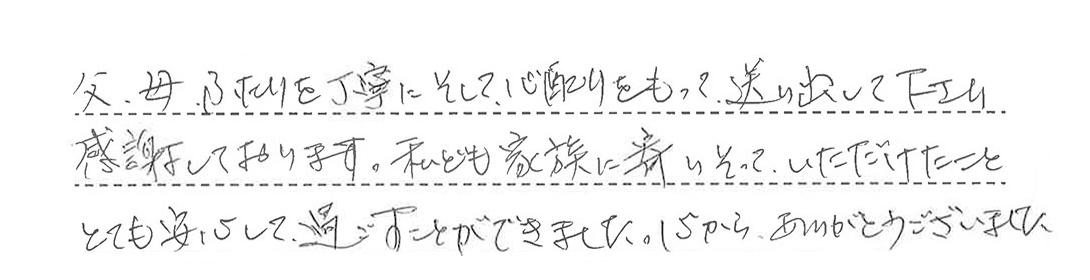 父、母、ふたりを丁寧にそして、心配りをもって、送り出して下さり
感謝しております。私ども家族に寄りそって、いただけたこと
とても安心して、過ごすことができました。心から、ありがとうございました